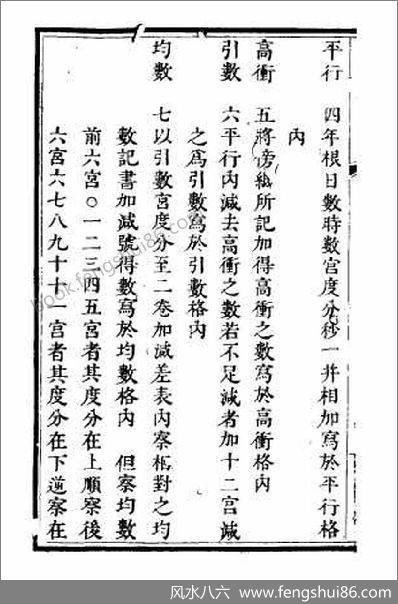 平行　四年根日數時數宮度分秒一并相加寫於平行格
內
高衝　五將傍紙所記加得高衝之數寫於高衝格內
引數　六平行內減去高衝之數若不足減者加十二宮減
之爲引數寫於引數格內
均數　七以引數宮度分至二卷加減差表內察相對之均
數記書加減號得數寫於均數格內　但察均數
前六宮○一二三四五宮者其度分在上順察後
六宮六七八九十十一宮者其度分在下逆察在
book.fengshui86.com
风水八六 www.fengshui86.com